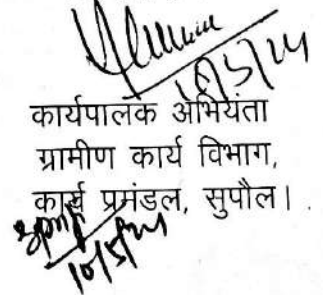 10/5/24
कार्यपालक अभियंता
ग्रामीण कार्य विभाग,
कार्य प्रमंडल, सुपौल।
10/5/24